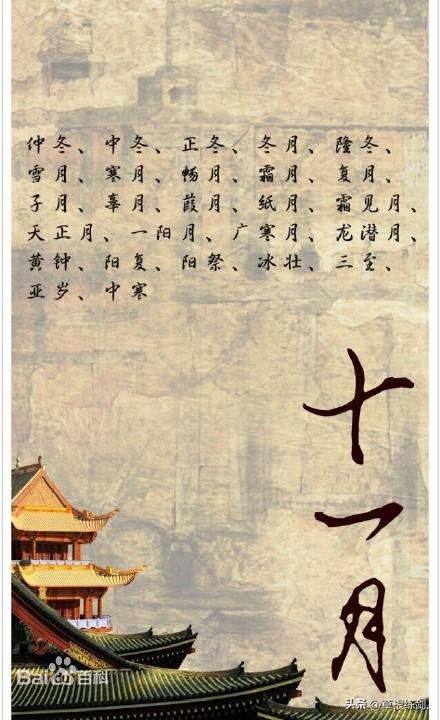 仲冬、中冬、正冬、冬月、隆冬、
雪月、寒月、畅月、霜月、复月、
子月、辜月、葭月、纸月、霜见月、
天正月、一阳月、广寒月、龙潜月、
黄钟、阳复、阳祭、冰壮、三至、
亚岁、中寒
十一月
Bai百科
头条 @草根练剑